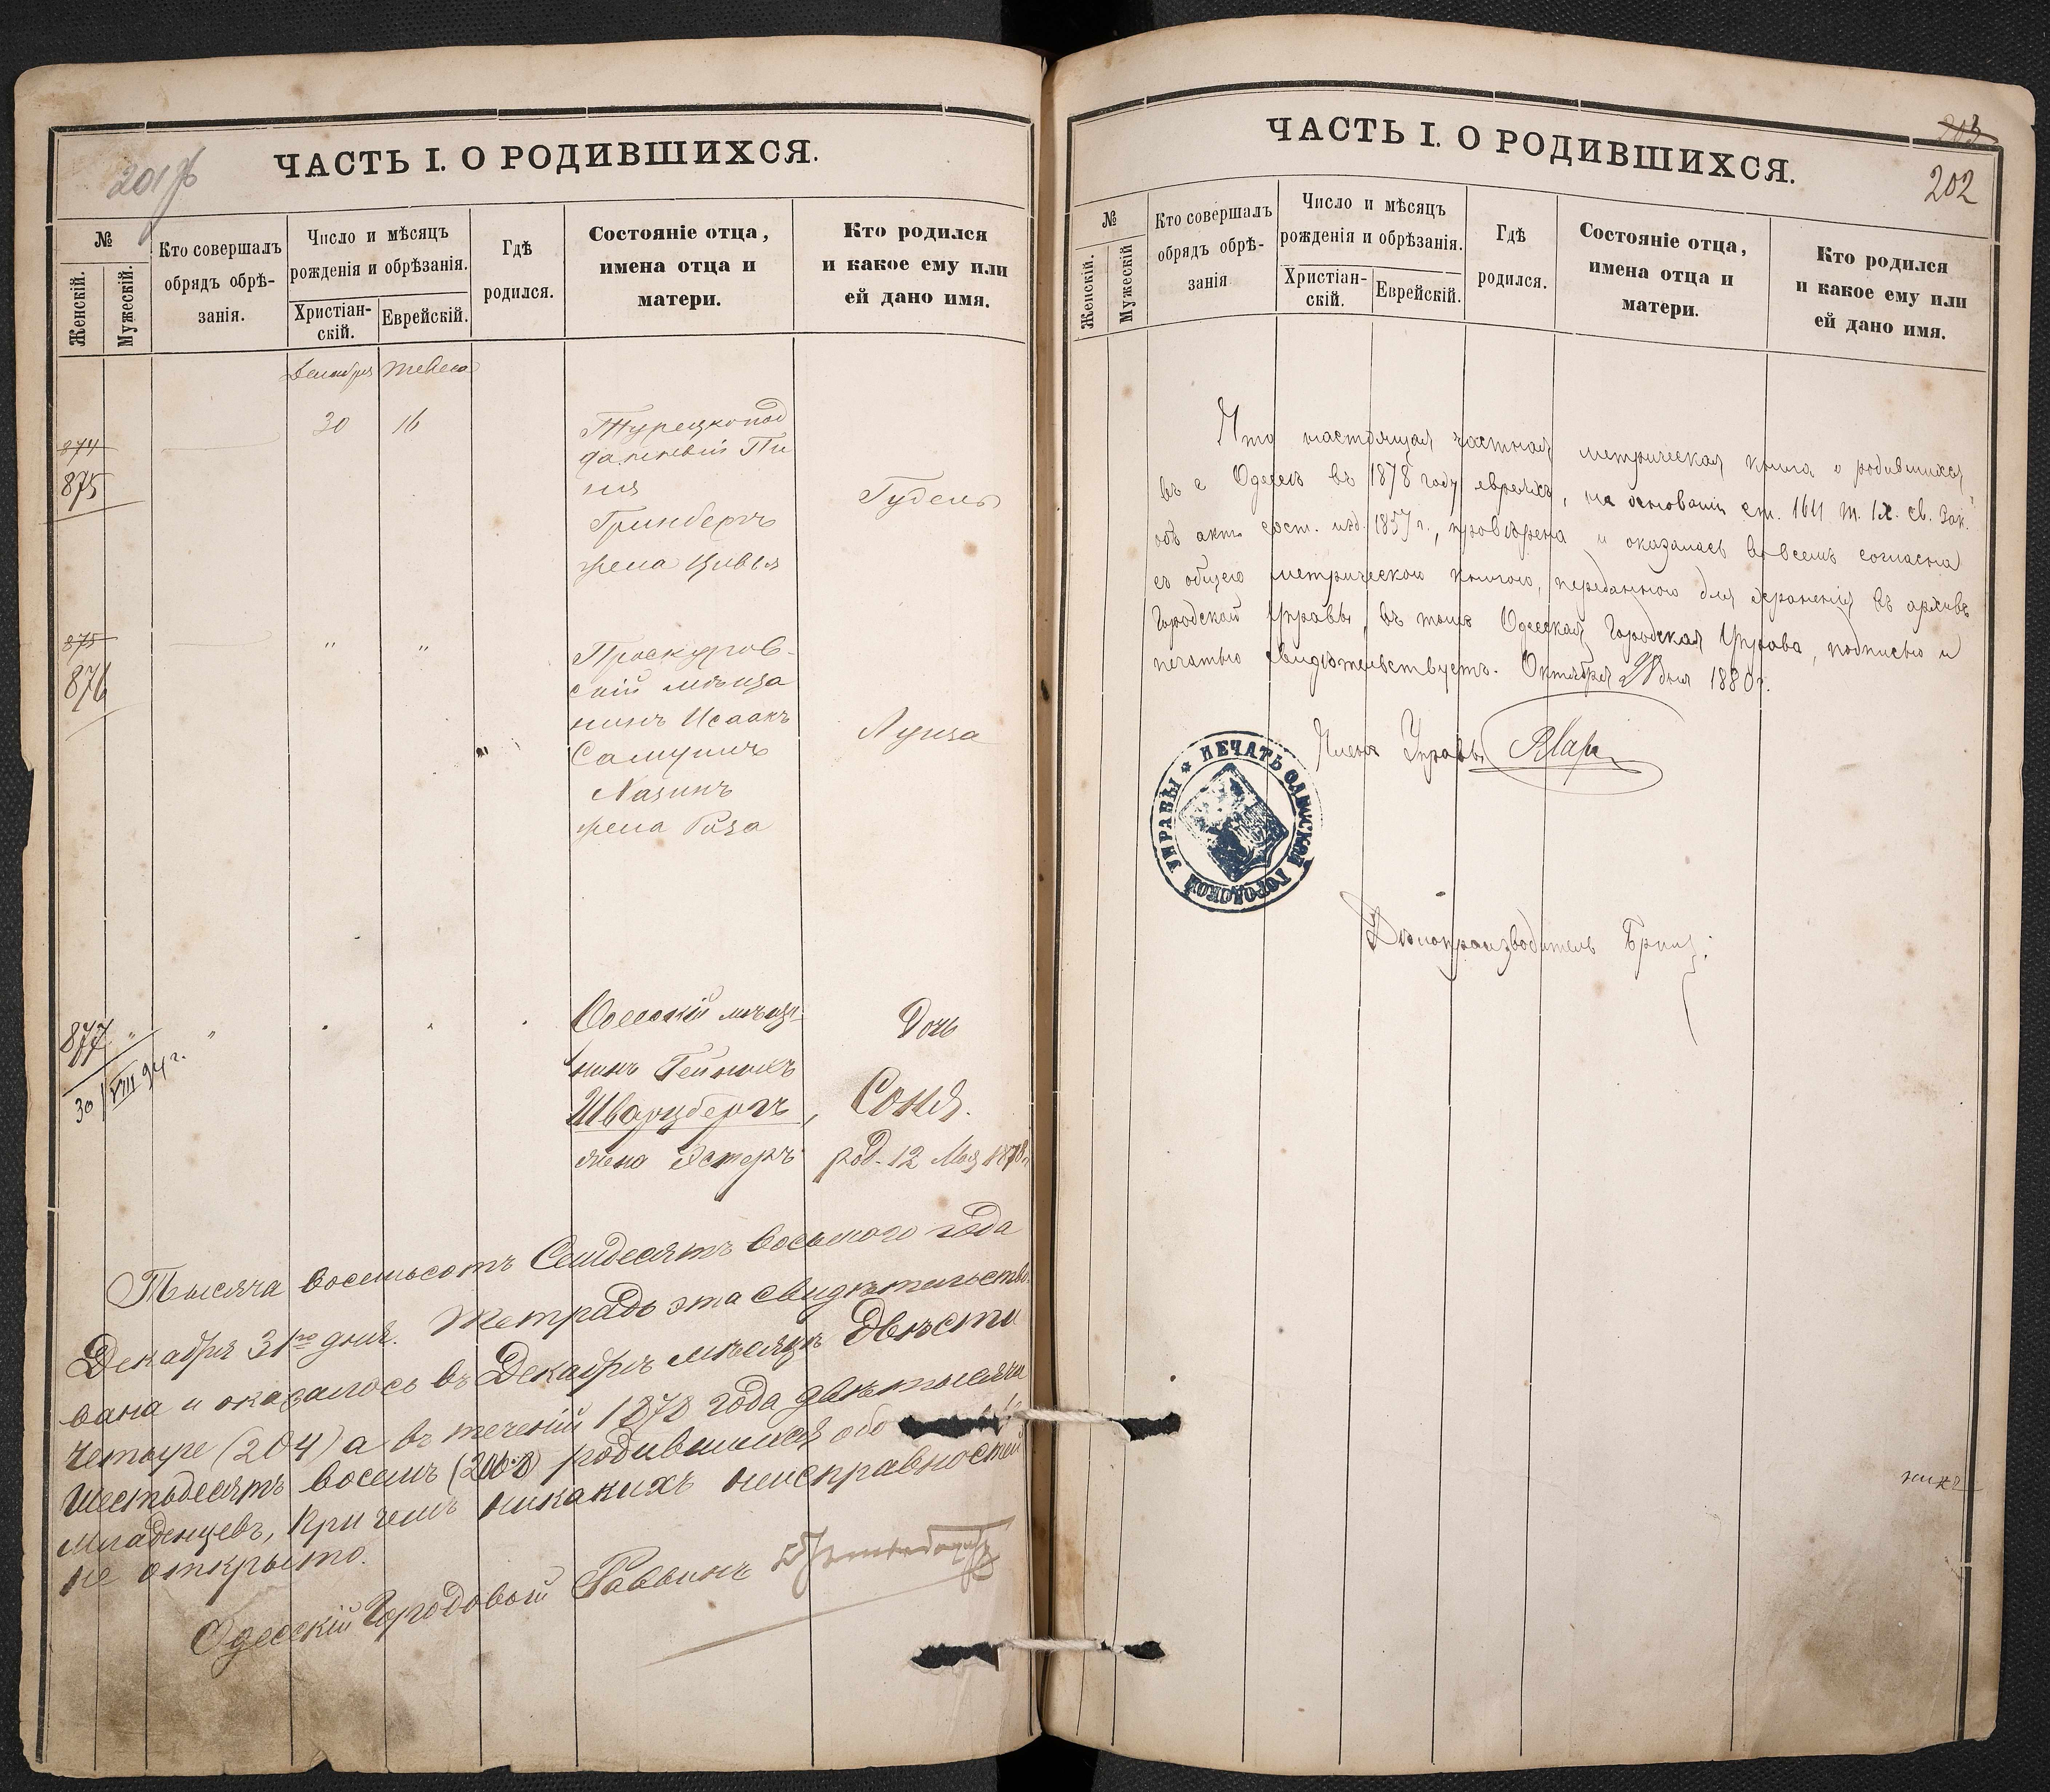 201 об
ЧАСТЬ I. О РОДИВШИХСЯ.
№
Женскій.
Мужескій.
Кто совершалъ
обрядъ обрѣ-
занія.
Число и мѣсяцъ
рожденія и обрѣзанія.
Христіан-
скій.
Еврейскій.
Гдѣ
родился.
Состояніе отца,
имена отца и
матери.
Кто родился
и какое ему или
ей дано имя.
Декабря Тевеса
874
875
30 16
Турецкопод
данный Пи
ня
Гринбергъ
жена Цивья
Гудель
875
876
" "
Проскуров-
скій мѣща
нинъ Исаакъ
Самуилъ
Лазинъ
жена Роза
Луиза
877 " "
30/VIII 94 г.
Одесскій мѣща-
нинъ Гейнихъ
Шварцбергъ,
жена Эстеръ
Дочь
Соня.
род. 12 Мая 1878 г
Тысяча восемьсотъ Семдесятъ восьмого года
Декабря 31го дня. Тетрадь эта свидѣтельство-
вана и оказалось въ Декабрѣ мѣсяцѣ двѣсти
четыре (204) а въ теченіи 1878 года двѣ тысячи
шестьдесятъ восемь (2068) родившихся обо
младенцевъ, при чемъ никакихъ неисправностей
не открыто.
Одесскій Городовой Раввинъ
ЧАСТЬ I. О РОДИВШИХСЯ.
203
202
№
Женскій.
Мужескій
Кто совершалъ
обрядъ обрѣ-
занія
Число и мѣсяцъ
рожденія и обрѣзанія.
Христіан-
скій.
Еврейскій.
Гдѣ
родился.
Состояніе отца,
имена отца и
матери.
Кто родился
и какое ему или
ей дано имя.
Что настоящая частная метрическая книга о родившихся
въ г. Одессѣ въ 1878 году евреяхъ, на основаніи ст. 1611 т. IX. св. Зак.
объ акт. сост. изд. 1857 г., провѣрена и оказалась во всемъ согласна
съ общею метрическою книгою, переданною для храненія въ архивъ
Городской Управы, въ томъ Одесская Городская Управа, подписью и
печатью свидѣтельствуетъ. Октября 28 дня 1880 г.
Членъ Управы
ПЕЧАТЬ ОДЕССКОЙ ГОРОДСКОЙ УПРАВЫ
Дѣлопроизводитель